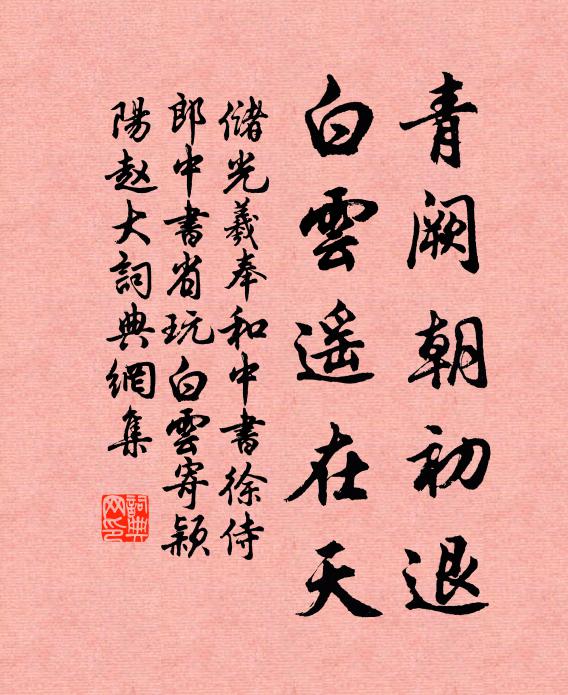 青阙朝初退
白雲遥在天
儲光羲奉和中書徐侍
郎中書省玩白雲寄颍
陽赵大詞典網集
詞典
网印